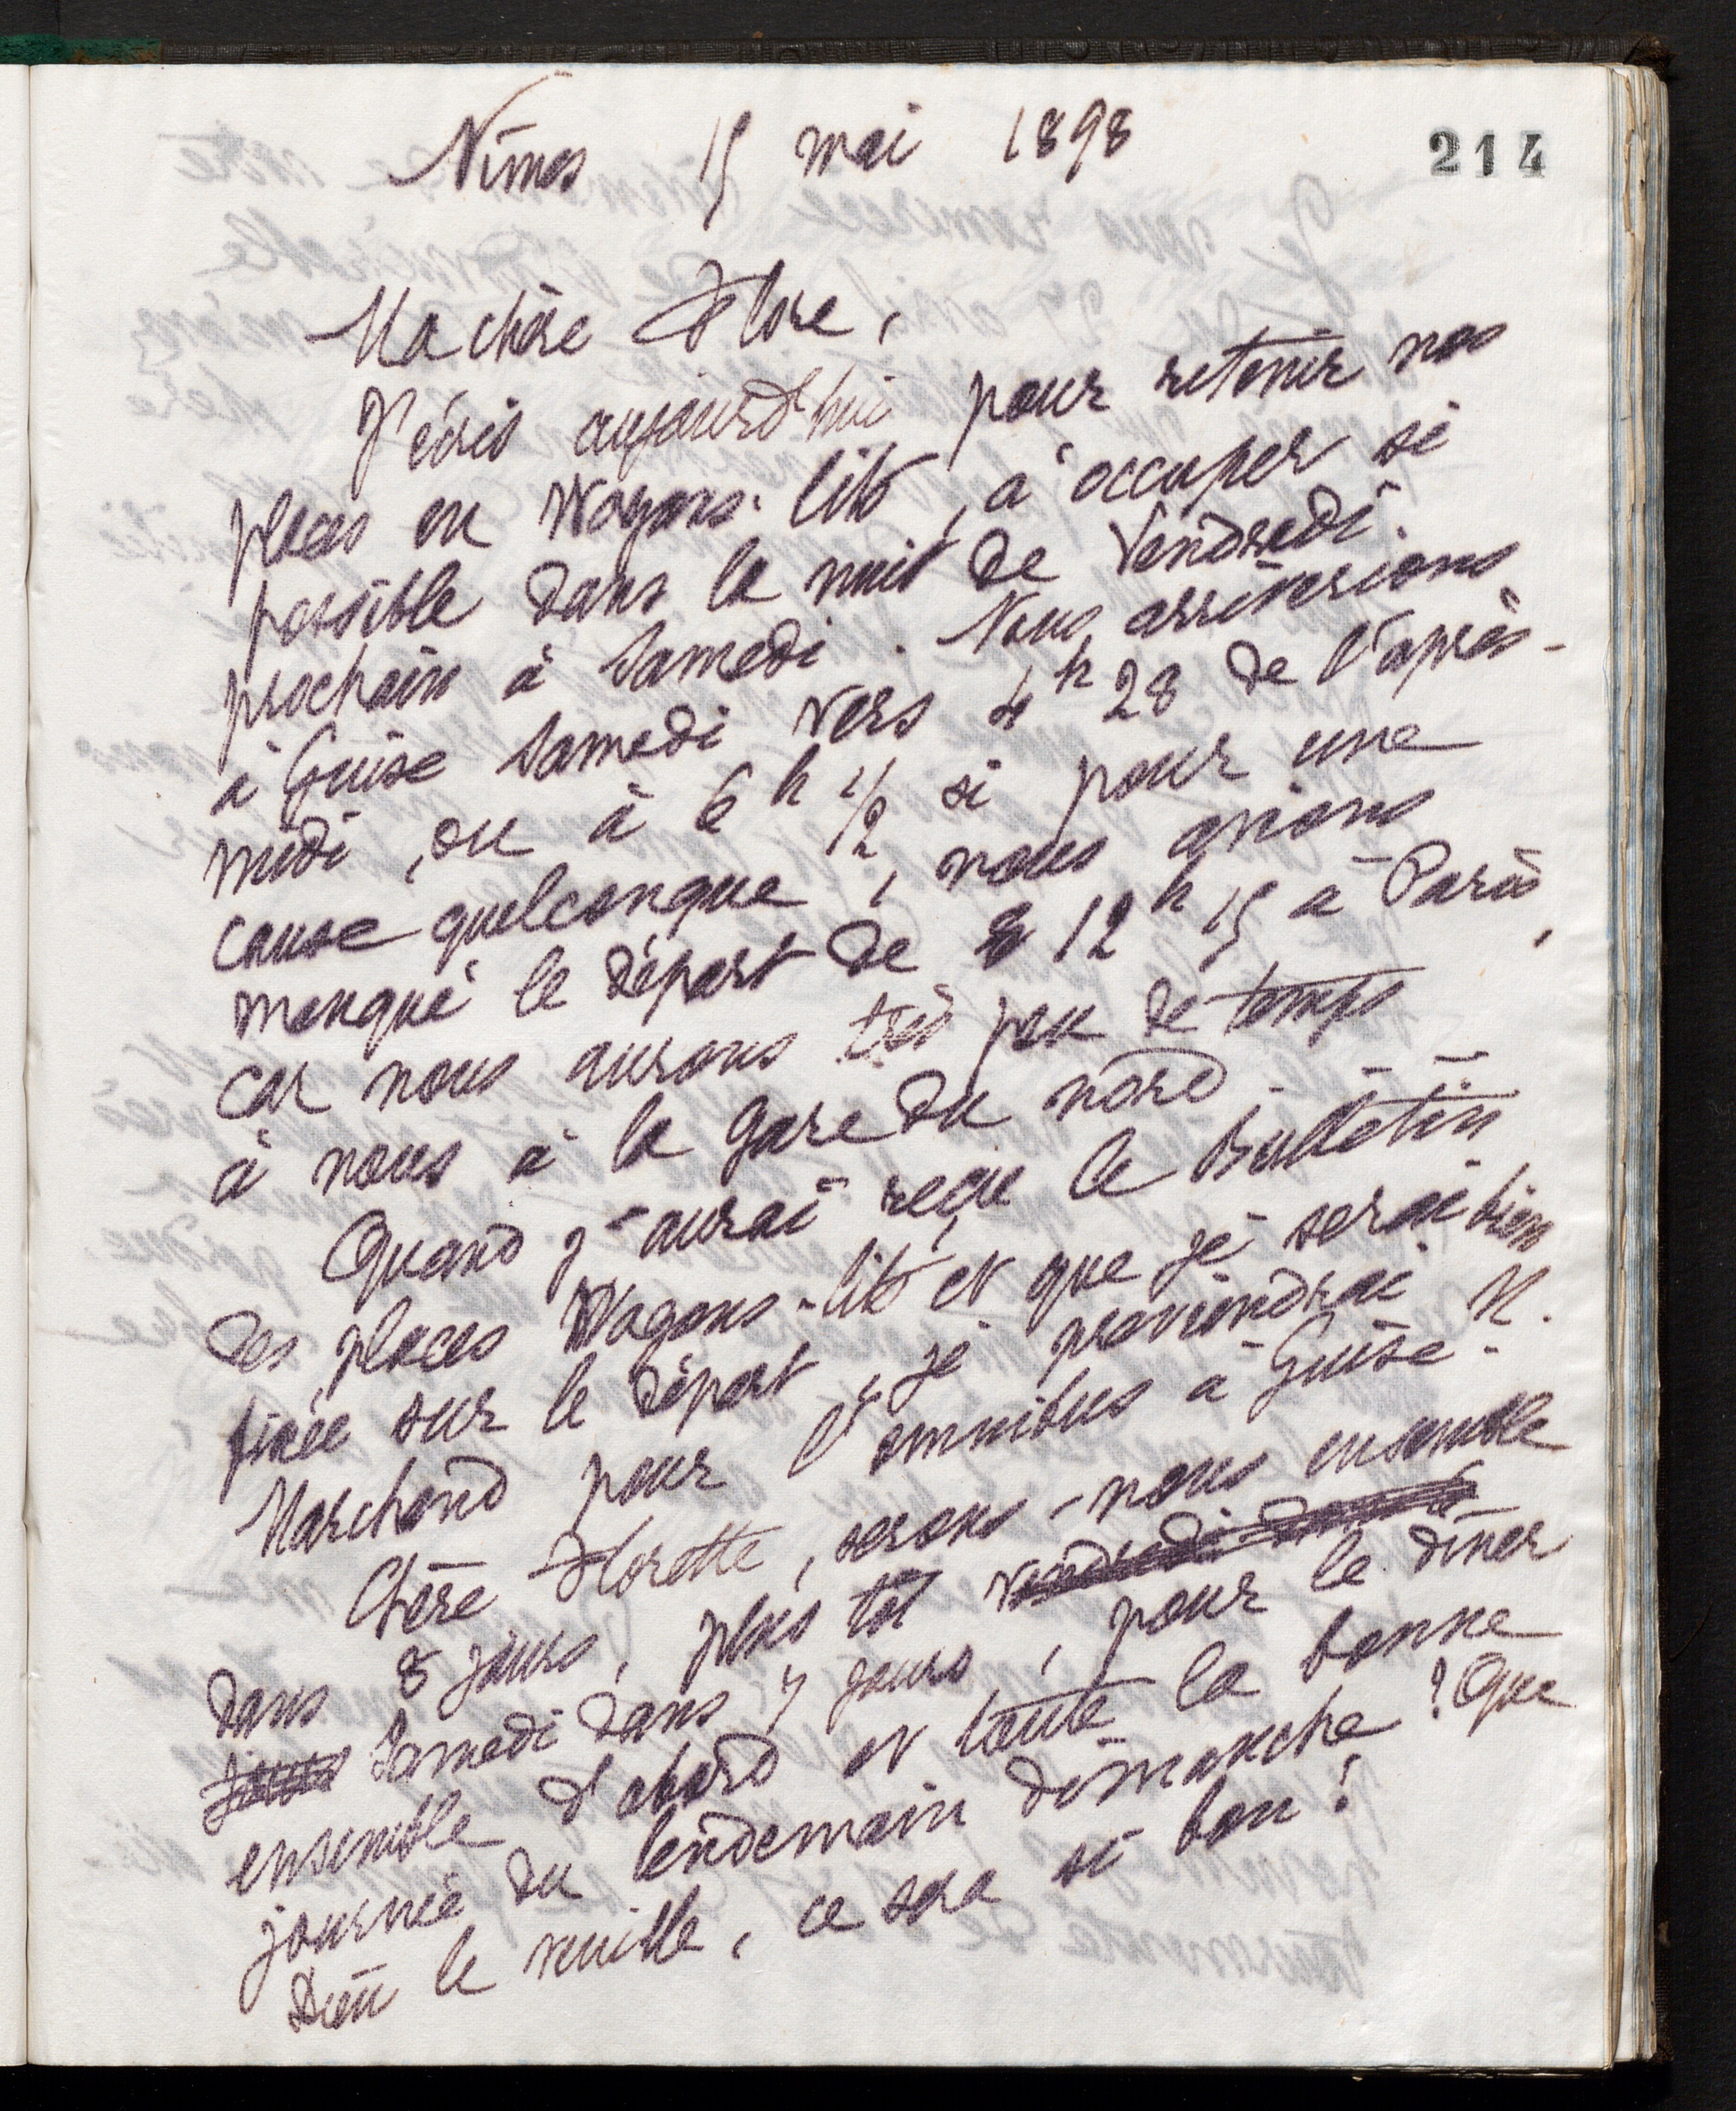 214
Nîmes 15 mai 1898
Ma chère Flore,
J'écris aujourd'hui pour retenir nos
places en Wagons-lits, à occuper si
possible dans la nuit de Vendredi
prochain à Samedi. Nous arriverions
à Guise Samedi vers 4h 28 de l'après-
midi, ou à 6h 1/2 si pour une
cause quelconque, nous avions
manqué le départ de 12h 15 à Paris,
car nous aurons très peu de temps
à nous à la gare du nord.
Quand j'aurai reçu le Bulletin
des places Wagons-lits et que je serai bien
fixée sur le départ, je préviendrai M.
Marchand pour l'omnibus à Guise.
Chère Florette, serons-nous ensemble
dans 8 jours, plus tôt vendredi dans
jours Samedi dans 7 jours, pour le dîner
ensemble d'abord et toute la bonne
journée du lendemain dimanche ? Que
Dieu le veuille, ce sera si bon !